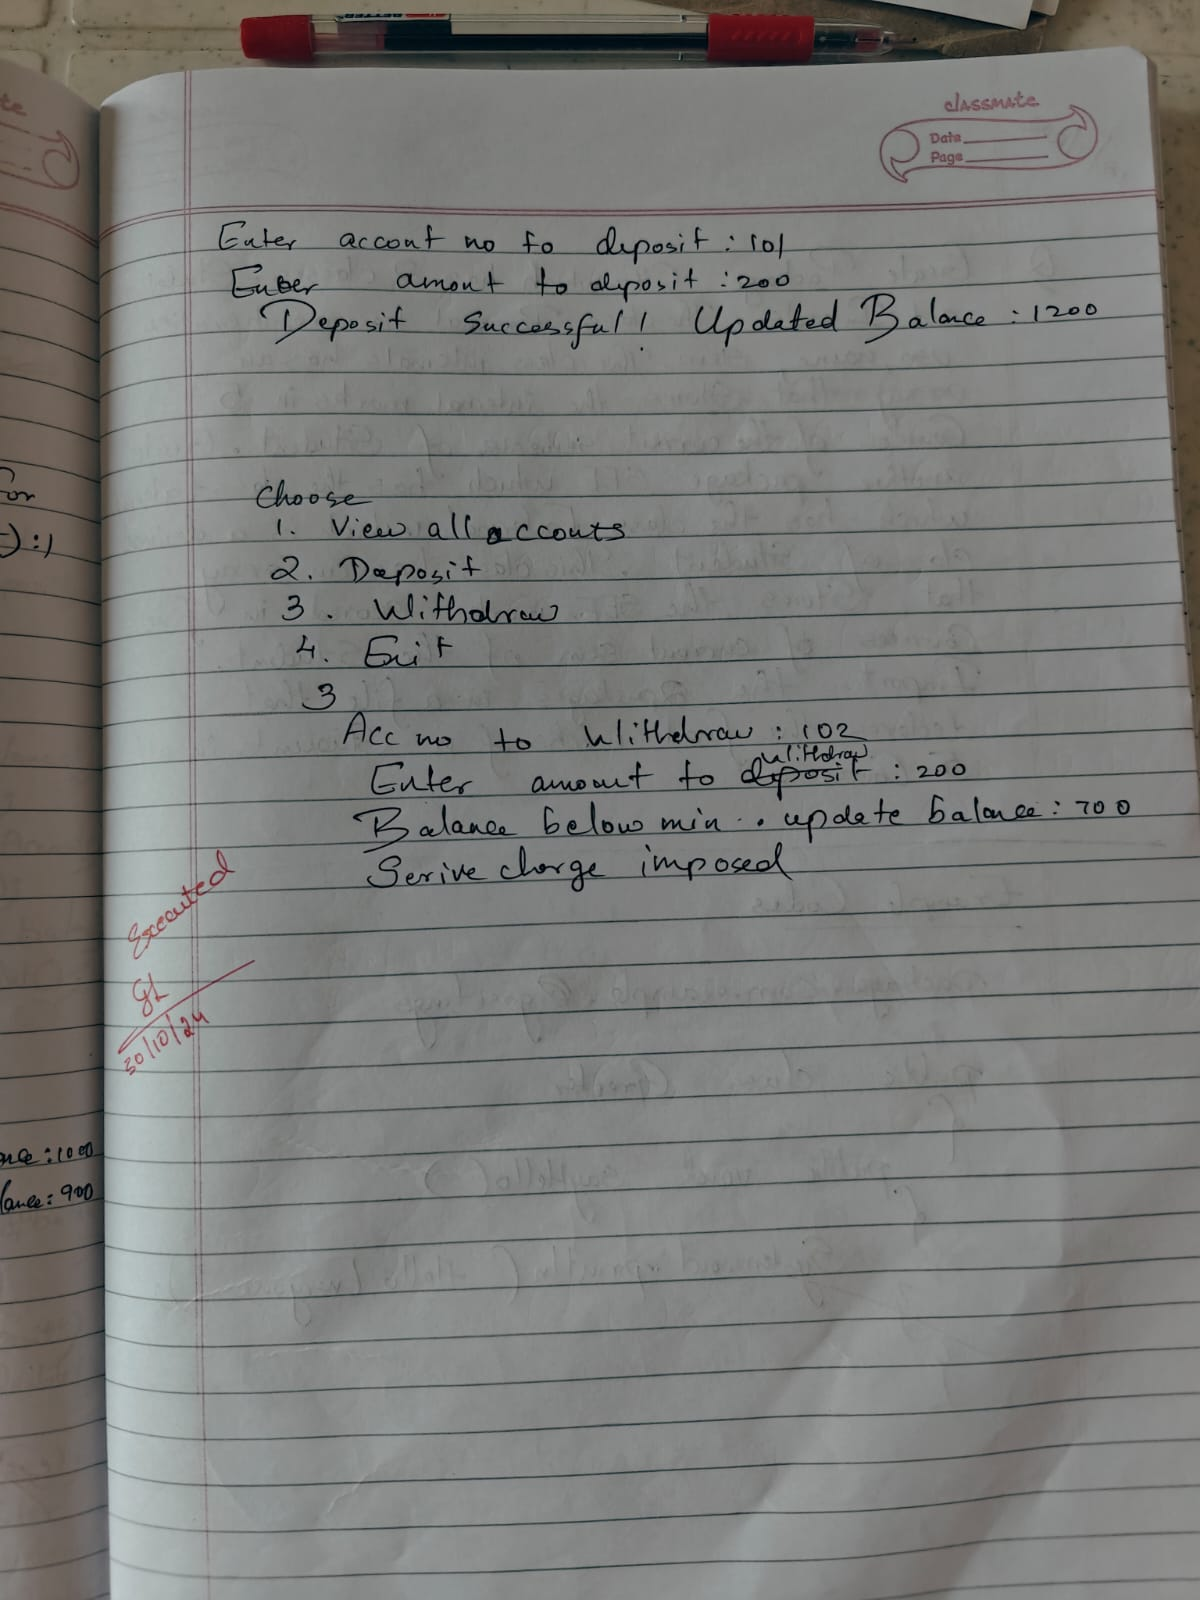 BETTER
classmate
Date
Page
Enter accont no to deposit : 101
Enter amont to deposit : 200
Deposit Successful! Updated Balance : 1200
Choose
1. View all accouts
2. Deposit
3. Withdraw
4. Exit
3
Acc no to Withdraw : 102
Withdraw
Enter amount to deposit : 200
Balance below min . update balance : 700
Serive charge imposed
Executed
30/10/24
te
For
) : 1
nce : 1000
lance : 900